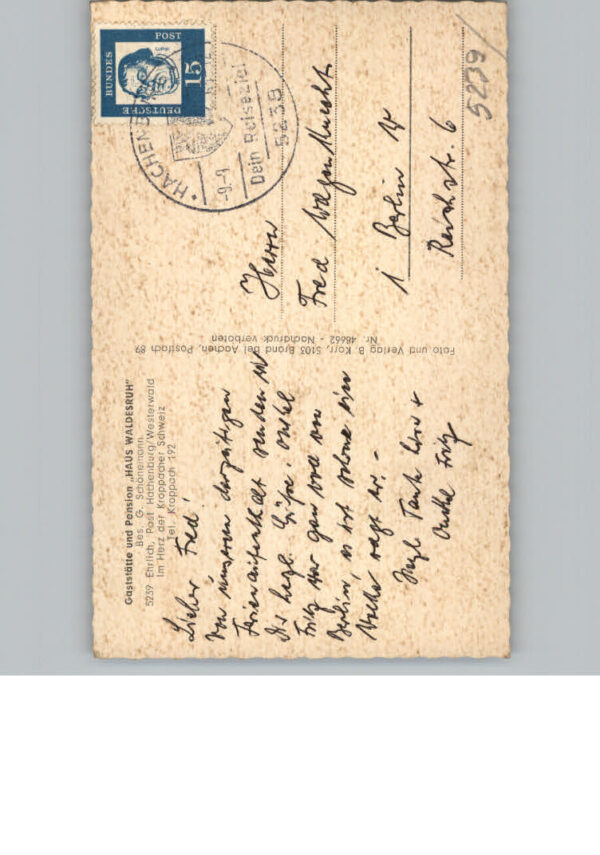 Gaststätte und Pension „HAUS WALDESRUH"
Bes. G. Schönemann
5239 Ehrlich, Post Hachenburg/Westerwald
Im Herz der Kroppacher Schweiz
Tel. Kroppach 192
Lieber Fred!
Von unserem derzeitigen
Ferienaufenthalt senden wir
Dir herzl. Grüße. Onkel
Fritz war ganz voll von
Berlin, es ist schon eine
Herzl. Tante +
Onkel Fritz
Foto und Verlag B. Korr, 5103 Brand bei Aachen, Postfach 89
Nr. 48662 - Nachdruck verboten
DEUTSCHE
BUNDES
POST
15
Luther
HACHENB
-9.-9
Dein Reiseziel
5238
Herrn
Fred Wagenknecht
1 Berlin
Reichstr. 6
5239/